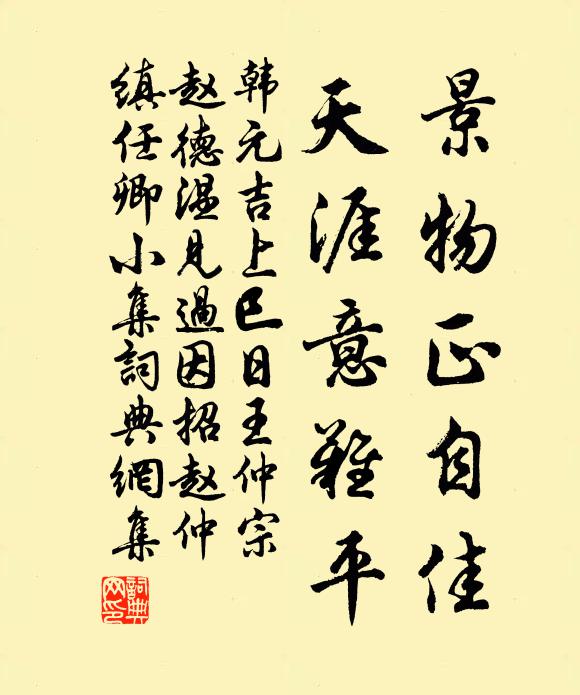 景物正自佳
天涯意難平
韩元吉上巳日王仲宗
赵德温見過因招赵仲
缜任卿小集詞典網集
詞典网印